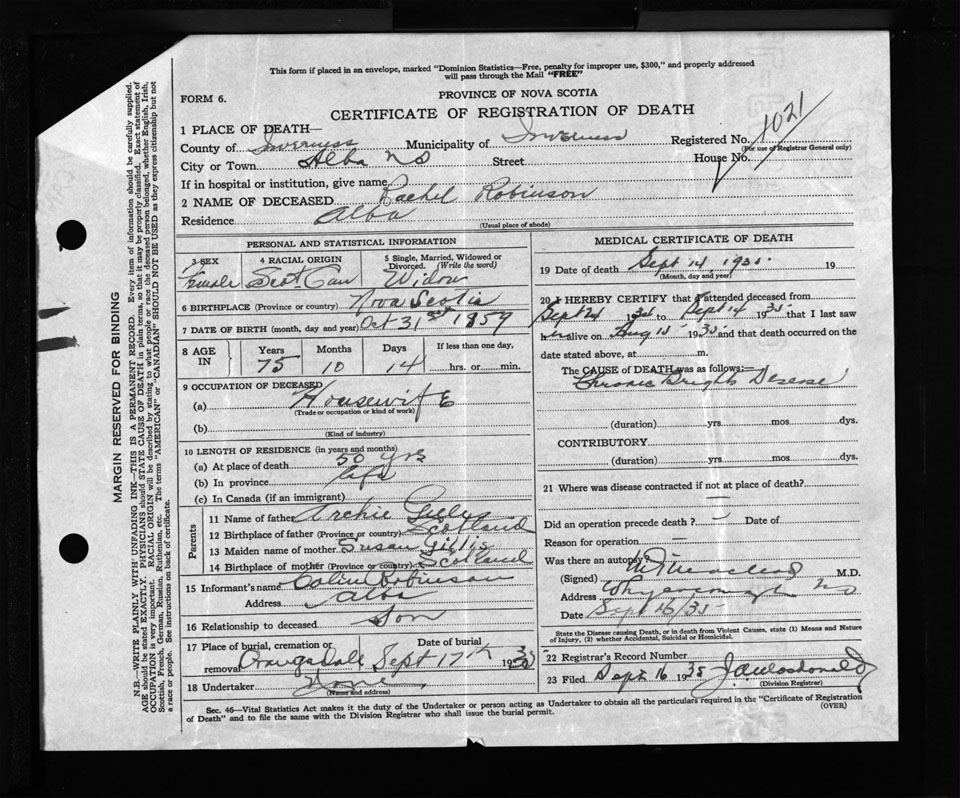 This form if placed in an envelope, marked "Dominion Statistics—Free, penalty for improper use, $300," and properly addressed
will pass through the Mail "FREE"
FORM 6.
PROVINCE OF NOVA SCOTIA
CERTIFICATE OF REGISTRATION OF DEATH
1021
1 PLACE OF DEATH—
County of Inverness Municipality of Inverness Registered No.
(For use of Registrar General only)
City or Town Alba NS Street House No.
If in hospital or institution, give name
2 NAME OF DECEASED Rachel Robinson
Residence Alba
(Usual place of abode)
PERSONAL AND STATISTICAL INFORMATION
3 SEX 4 RACIAL ORIGIN 5 Single, Married, Widowed or Divorced. (Write the word)
Female Scot Can Widow
6 BIRTHPLACE (Province or country) Nova Scotia
7 DATE OF BIRTH (month, day and year) Oct 31st 1859
8 AGE IN Years Months Days If less than one day,
75 10 14 hrs. or min.
9 OCCUPATION OF DECEASED
(a) Housewife
(Trade or occupation or kind of work)
(b)
(Kind of industry)
10 LENGTH OF RESIDENCE (in years and months)
(a) At place of death 50 yrs
(b) In province life
(c) In Canada (if an immigrant)
Parents
11 Name of father Archie Gillis
12 Birthplace of father (Province or country) Scotland
13 Maiden name of mother Susan Gillis
14 Birthplace of mother (Province or country) Scotland
15 Informant's name Colin Robinson
Address Alba
16 Relationship to deceased Son
17 Place of burial, cremation or removal Date of burial
Sept 17th 1935
18 Undertaker None
(Name and address)
MEDICAL CERTIFICATE OF DEATH
19 Date of death Sept 14 1935 19
(Month, day and year)
20 I HEREBY CERTIFY that I attended deceased from
1935 to Sept 14 1935 that I last saw
h er alive on Aug 15 1935 and that death occurred on the
date stated above, at m.
The CAUSE of DEATH was as follows:
Chronic Brights Desease
(duration) yrs mos dys.
CONTRIBUTORY
(duration) yrs mos dys.
21 Where was disease contracted if not at place of death?
Did an operation precede death? Date of
Reason for operation
Was there an autopsy?
(Signed) M.D.
Address Whycocomagh NS
Date Sept 16/35
State the Disease causing Death, or in death from Violent Causes, state (1) Means and Nature
of Injury, (2) whether Accidental, Suicidal or Homicidal.
22 Registrar's Record Number
23 Filed Sept 16 1935 J A Macdonald
(Division Registrar)
Sec. 46—Vital Statistics Act makes it the duty of the Undertaker or person acting as Undertaker to obtain all the particulars required in the "Certificate of Registration
of Death" and to file the same with the Division Registrar who shall issue the burial permit.
(OVER)
MARGIN RESERVED FOR BINDING
N.B.—WRITE PLAINLY WITH UNFADING INK—THIS IS A PERMANENT RECORD. Every item of information should be carefully supplied.
AGE should be stated EXACTLY. PHYSICIANS should STATE CAUSE OF DEATH in plain terms, so that it may be properly classified. Exact statement of
OCCUPATION is very important. RACIAL ORIGIN will be described by stating to what people or race the deceased person belonged, whether English, Irish,
Scottish, French, German, Russian, Ruthenian, etc. The terms "AMERICAN" or "CANADIAN" SHOULD NOT BE USED as they express citizenship but not
a race or people. See instructions on back of certificate.